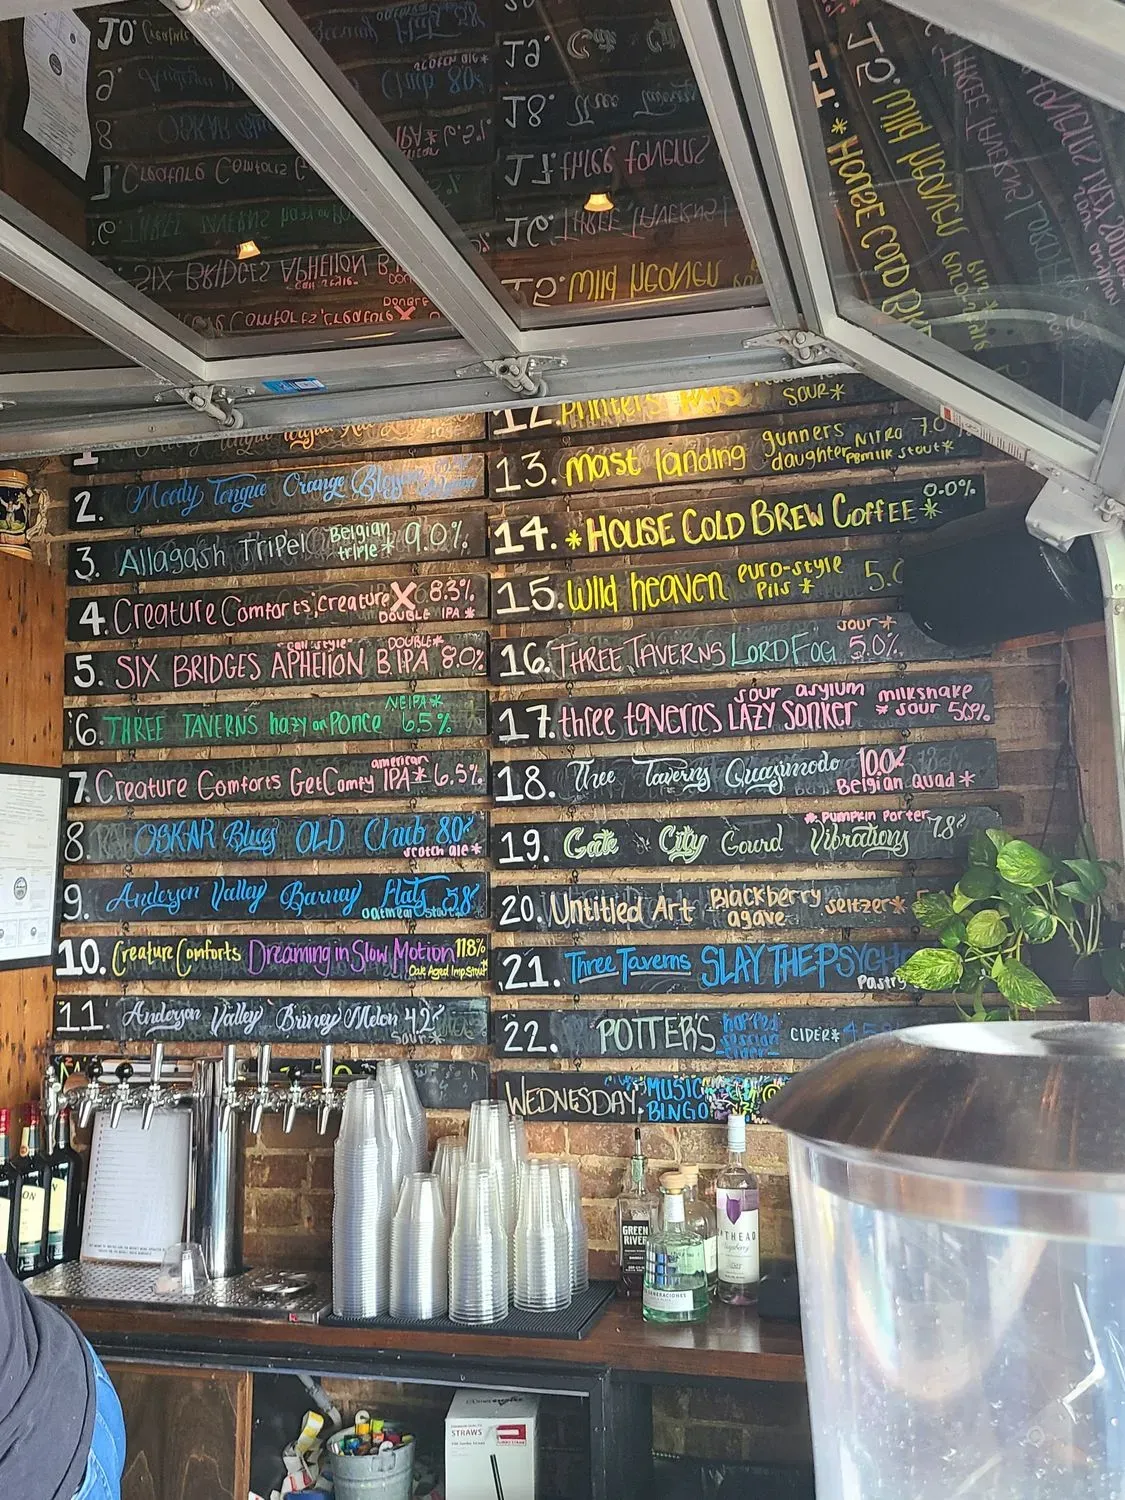 2. Moody Tongue Orange Blossom
3. Allagash Tripel Belgian triple* 9.0%
4. Creature Comforts, Creature X 8.3%
DOUBLE IPA*
5. SIX BRIDGES APHELION "Cali-style" DOUBLE* IPA 8.0%
6. THREE TAVERNS hazy on Ponce NEIPA* 6.5%
7. Creature Comforts Get Comfy american IPA* 6.5%
8. OSKAR Blues OLD Chub 80%
scotch ale*
9. Anderson Valley Barney Flats 5.8%
oatmeal stout*
10. Creature Comforts Dreaming in Slow Motion 11.8%
Oak Aged Imp. Stout*
11. Anderson Valley Briney Melon 4.2%
sour*
12. Printers
SOUR*
13. Mast landing gunners daughter NITRO 7.0
PBmilk stout*
14. *HOUSE COLD BREW COFFEE* 0.0%
15. Wild heaven euro-style Pils * 5.0
16. THREE TAVERNS LORD FOG sour* 5.0%
17. three taverns LAZY SONKER sour asylum milkshake
* sour 5.0%
18. Three Taverns Quasimodo 10.0%
Belgian quad*
19. Gate City Gourd Vibrations * pumpkin porter 7.8%
20. Untitled Art Blackberry agave seltzer*
21. Three Taverns SLAY THE PSYCHO
Pastry
22. POTTER'S hopped session cider CIDER* 4.5
WEDNESDAY: MUSIC BINGO
GREEN RIVER
GENERACIONES
THEAD
STRAWS